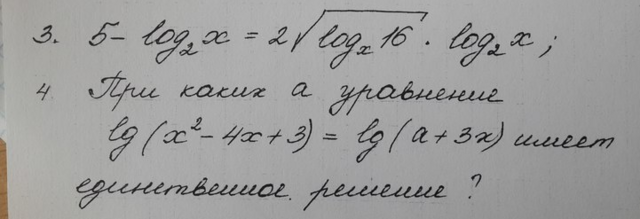 3. 5 - log₂x = 2√(logₓ16) · log₂x ;
4 При каких а уравнение
lg(x² - 4x + 3) = lg(a + 3x) имеет
единственное решение ?